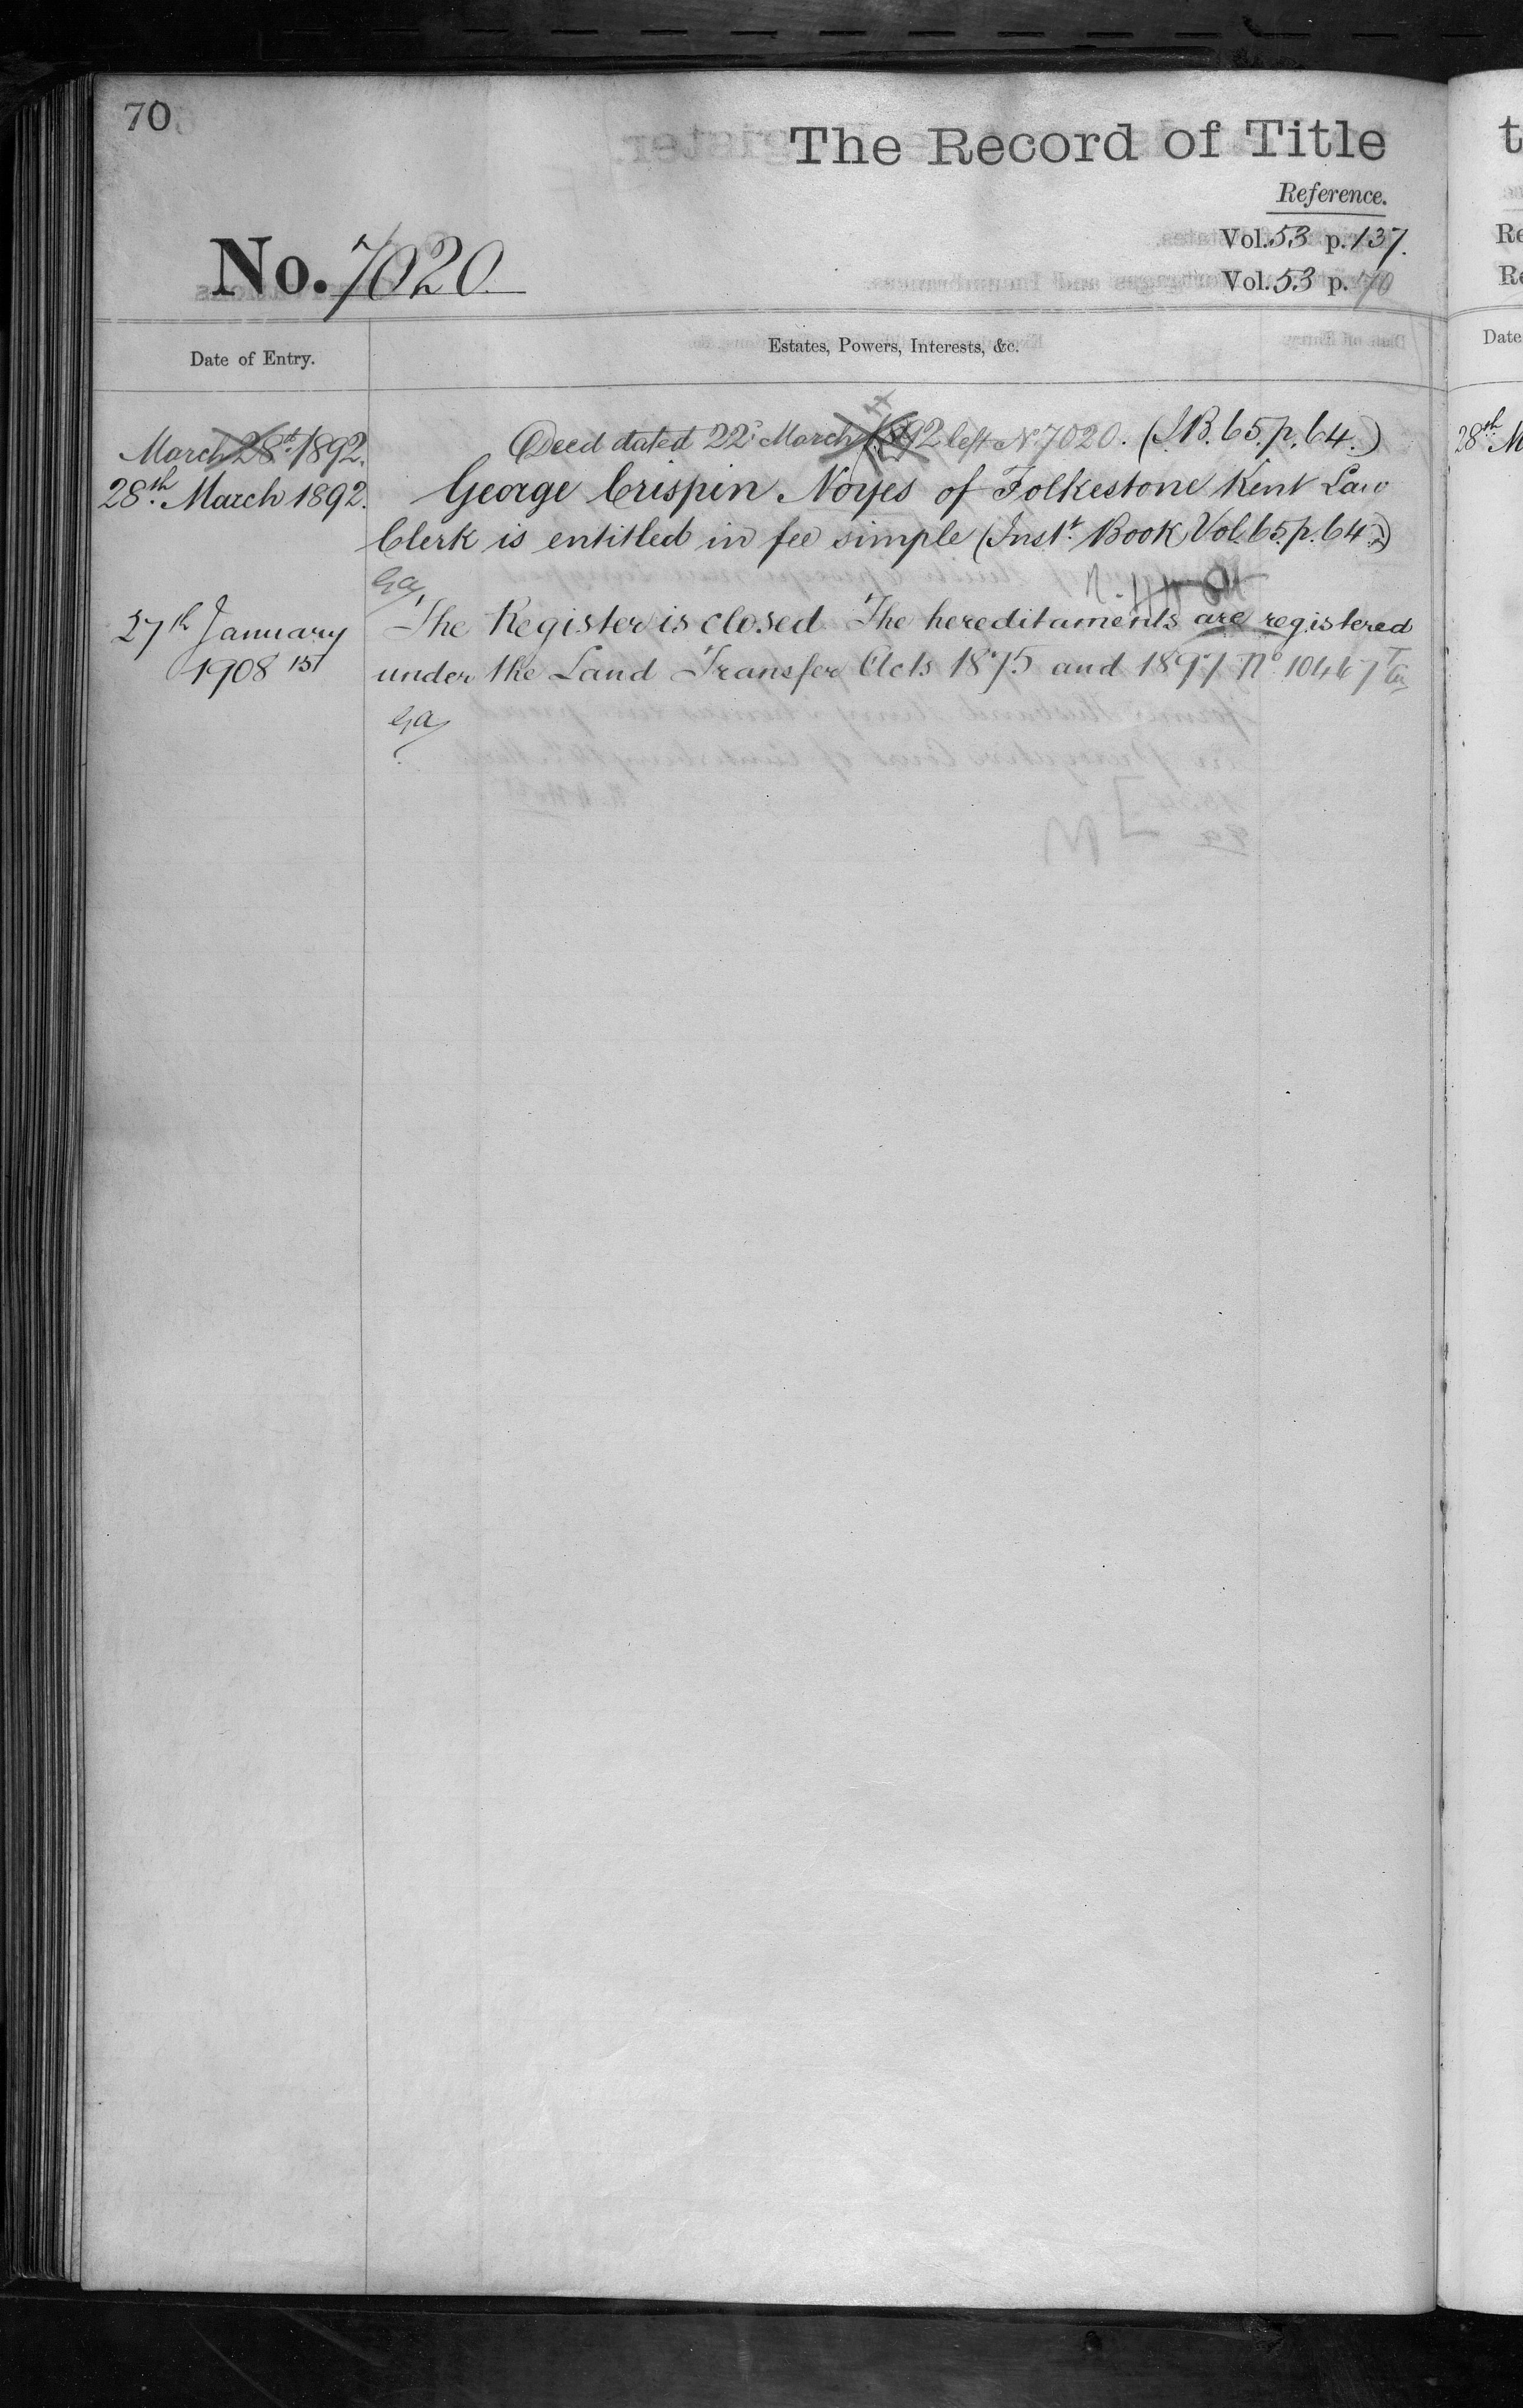 70
The Record of Title
Reference.
Vol. 53 p. 137.
No. 7020
Vol. 53 p. 70
Date of Entry.
Estates, Powers, Interests, &c.
March 28th 1892.
Deed dated 22d March 1892 left No 7020. (I.B. 65. p. 64.)
28th March 1892.
George Crispin Noyes of Folkestone Kent Law
Clerk is entitled in fee simple (Inst. Book Vol. 65. p. 64.)
27th January
The Register is closed The hereditaments are registered
1908
under the Land Transfer Acts 1875 and 1897 No 10467
t
Re
Re
Date
28th M